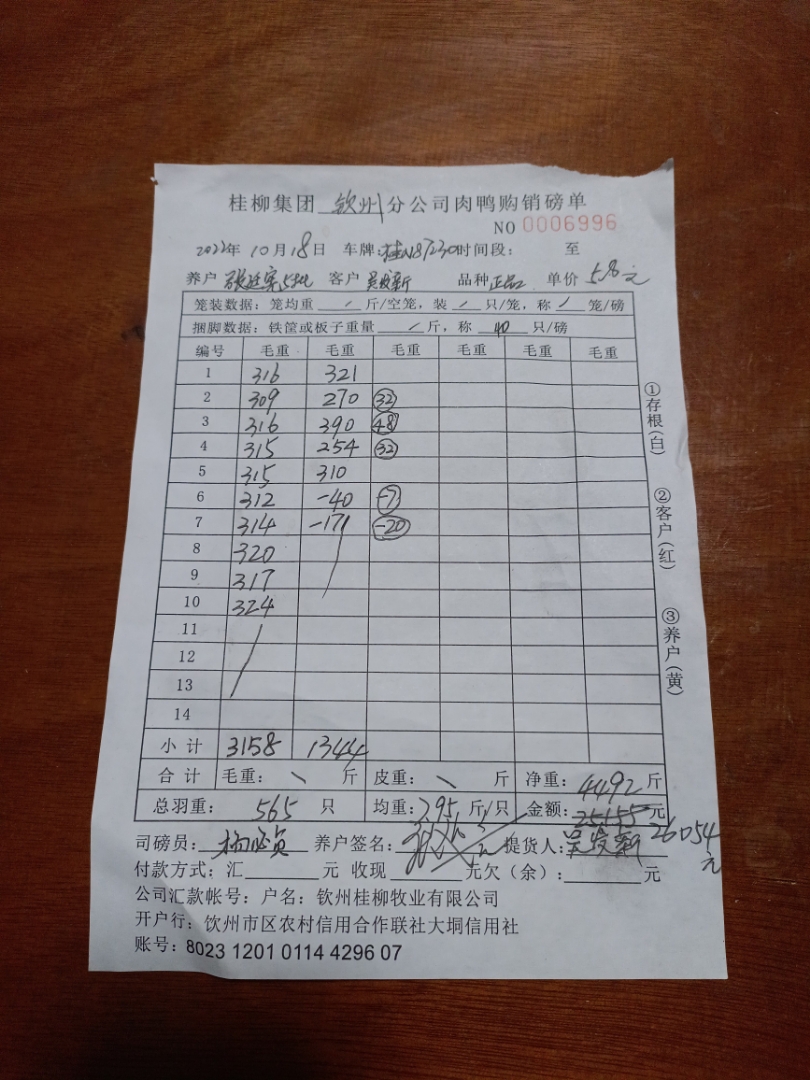 桂柳集团 钦州 分公司肉鸭购销磅单
NO 0006996
2022年 10月18日 车牌:桂N87230 时间段: 至
养户 客户 吴发新 品种 正品 单价 5.8元
笼装数据: 笼均重 / 斤/空笼, 装 / 只/笼, 称 / 笼/磅
捆脚数据: 铁筐或板子重量 / 斤, 称 40 只/磅
编号 毛重 毛重 毛重 毛重 毛重 毛重
1 316 321
2 309 270 32
3 316 390 48
4 315 254 32
5 315 310
6 312 -40 -7
7 314 -171 -20
8 320
9 317
10 324
11
12
13
14
小计 3158 1344
合计 毛重: \ 斤 皮重: \ 斤 净重: 4492 斤
总羽重: 565 只 均重: 7.95 斤/只 金额: 25155 元
26054元
司磅员: 养户签名: 提货人: 吴发新
付款方式: 汇 元 收现 元欠(余): 元
公司汇款帐号: 户名: 钦州桂柳牧业有限公司
开户行: 钦州市区农村信用合作联社大垌信用社
账号: 8023 1201 0114 4296 07
①存根(白)
②客户(红)
③养户(黄)